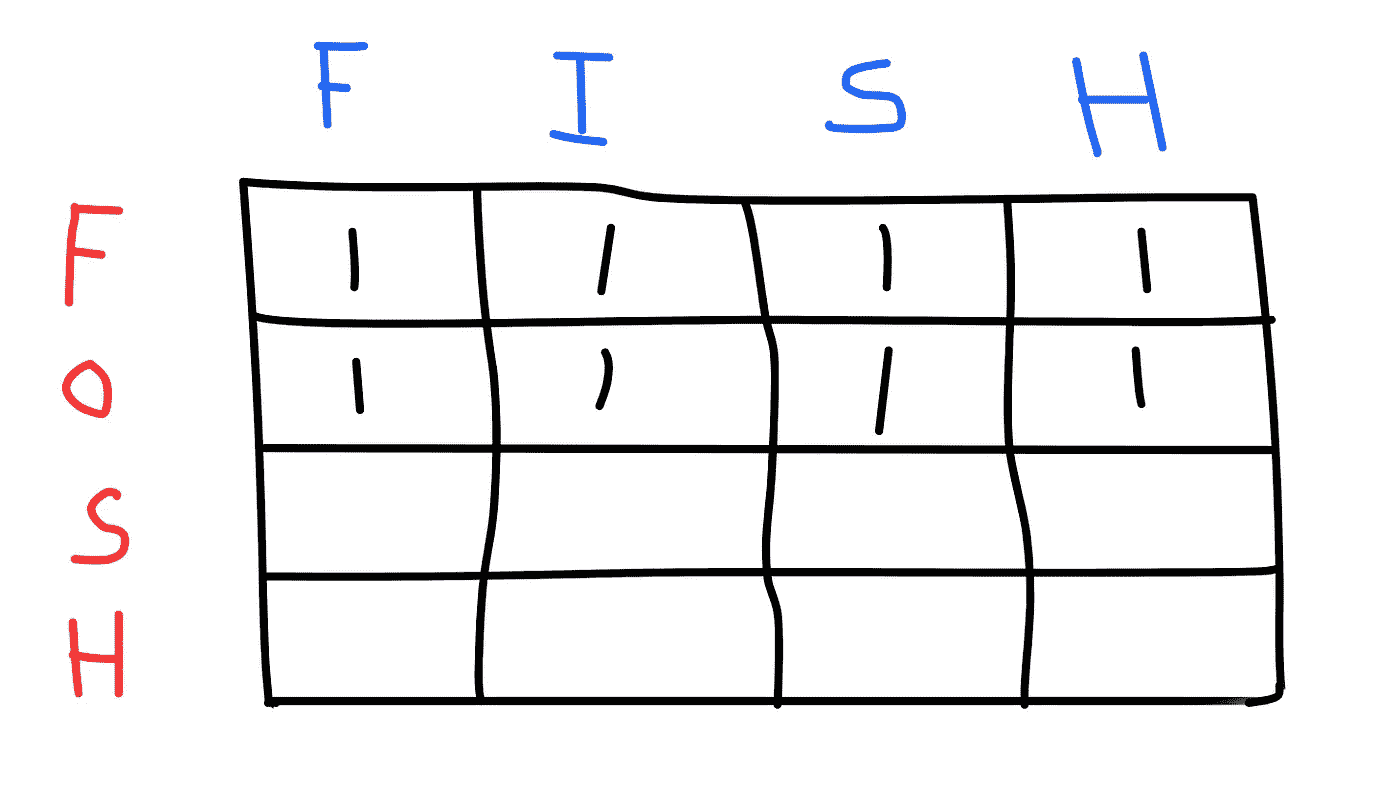 F I S H
F 1 1 1 1
O 1 1 1 1
S
H